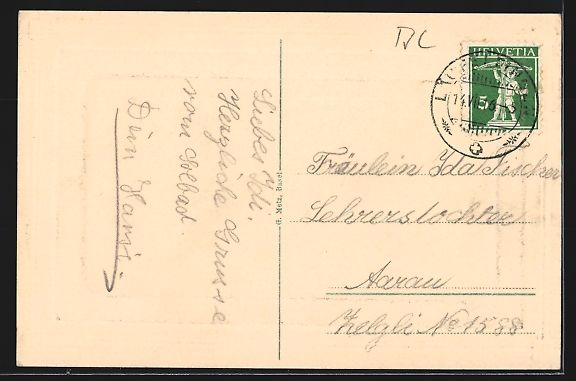 BC
HELVETIA
5
Liebes Idi.
Herzliche Grüsse
vom Solbad
Dein Hansi.
G. Metz, Basel
Fräulein Ida Fischer
Lehrerstochter
Aarau
Zelgli No 1588